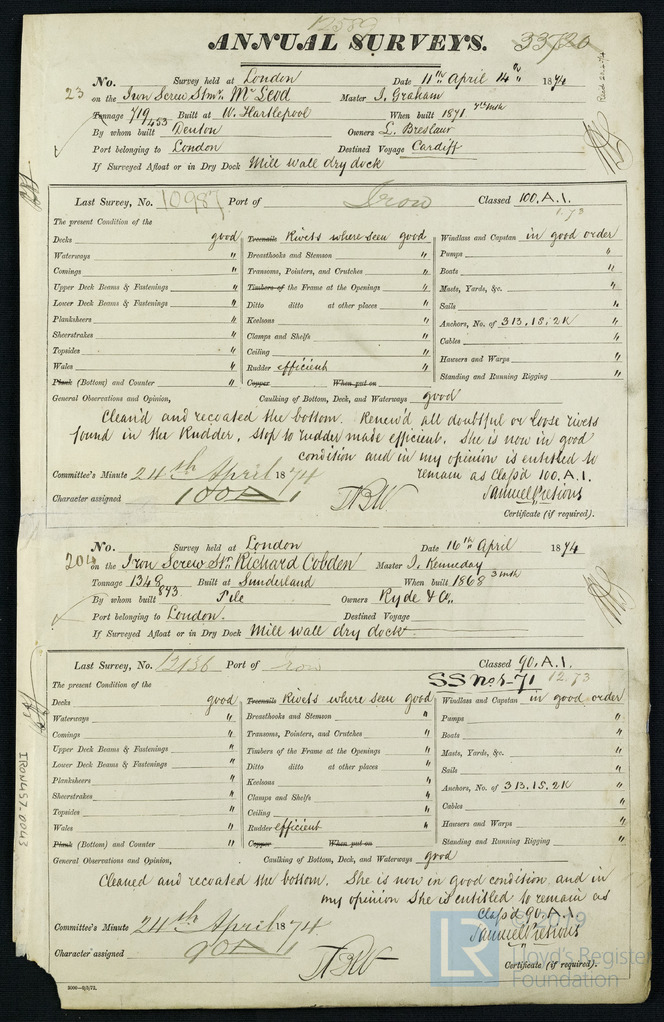 12589
ANNUAL SURVEYS. 33720
No. Survey held at London Date 11th April 14th 1874
23 on the Iron Screw Stmr. McLeod Master J. Graham
Tonnage 719 453 Built at W. Hartlepool When built 1871 7th Mth
By whom built Denton Owners L. Breslaur
Port belonging to London Destined Voyage Cardiff
If Surveyed Afloat or in Dry Dock Mill wall dry dock
Last Survey, No. 10987 Port of Iron Classed 100.A.1.
1.73
The present Condition of the
Decks good Treenails Rivets where seen good Windlass and Capstan in good order
Waterways " Breasthooks and Stemson " Pumps "
Comings " Transoms, Pointers, and Crutches " Boats "
Upper Deck Beams & Fastenings " Timbers of the Frame at the Openings " Masts, Yards, &c. "
Lower Deck Beams & Fastenings " Ditto ditto at other places " Sails "
Planksheers " Keelsons " Anchors, No. of 3B.1S.2K "
Sheerstrakes " Clamps and Shelfs " Cables "
Topsides " Ceiling " Hawsers and Warps "
Wales " Rudder efficient " Standing and Running Rigging "
Plank (Bottom) and Counter " Copper When put on
General Observations and Opinion, Caulking of Bottom, Deck, and Waterways good
Clean'd and recoated the bottom. Renew'd all doubtful or loose rivets
found in the Rudder, Stop to rudder made efficient. She is now in good
condition and in my opinion is entitled to
Committee's Minute 24th April 1874 remain as Class'd 100.A.1.
Character assigned 100A1 Samuel Pretious
Certificate (if required).
No. Survey held at London Date 16th April 1874
204 on the Iron Screw Str. Richard Cobden Master J. Kenneday
Tonnage 1348 Built at Sunderland When built 1868 3 mth
By whom built 873 Pile Owners Ryde & Co.
Port belonging to London. Destined Voyage
If Surveyed Afloat or in Dry Dock Mill wall dry dock
Last Survey, No. 12136 Port of Iron Classed 90.A.1.
SS No 1-71 12.73
The present Condition of the
Decks good Treenails Rivets where seen good Windlass and Capstan in good order
Waterways " Breasthooks and Stemson " Pumps "
Comings " Transoms, Pointers, and Crutches " Boats "
Upper Deck Beams & Fastenings " Timbers of the Frame at the Openings " Masts, Yards, &c. "
Lower Deck Beams & Fastenings " Ditto ditto at other places " Sails "
Planksheers " Keelsons " Anchors, No. of 3B.1S.2K "
Sheerstrakes " Clamps and Shelfs " Cables "
Topsides " Ceiling " Hawsers and Warps "
Wales " Rudder efficient " Standing and Running Rigging "
Plank (Bottom) and Counter " Copper When put on
General Observations and Opinion, Caulking of Bottom, Deck, and Waterways good
Cleaned and recoated the bottom. She is now in good condition and in
my opinion She is entitled to remain as
Class'd 90.A.1.
Committee's Minute 24th April 1874 Samuel Pretious
Character assigned 90A1
Certificate (if required).
IRON457-0043
LR © 2019
Lloyd's Register
Foundation